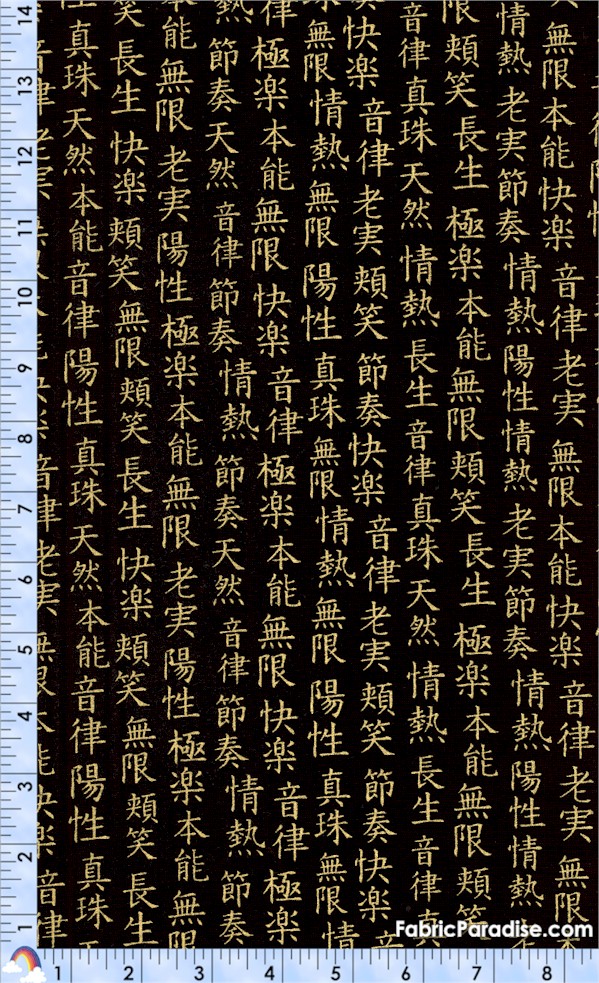 無限本能快楽音律老実無限本能快楽音律老実無限
情熱老実節奏情熱陽性情熱老実節奏情熱陽性情熱
限頬笑長生極楽本能無限頬笑長生極楽本能無限頬笑
音律真珠天然情熱長生音律真珠天然情熱長生音律真
快楽音律老実頬笑節奏快楽音律老実頬笑節奏快楽
無限情熱無限陽性真珠無限情熱無限陽性真珠無限情
律極楽本能無限快楽音律極楽本能無限快楽音律極楽
熱節奏天然音律節奏情熱節奏天然音律節奏情熱節奏
能無限老実陽性極楽本能無限老実陽性極楽本能無限
笑長生快楽頬笑無限頬笑長生快楽頬笑無限頬笑長生
真珠天然本能音律陽性真珠天然本能音律陽性真珠
音律老実
音律老実無限本能快楽音律
14 13 12 11 10 9 8 7 6 5 4 3 2 1
FabricParadise.com
1 2 3 4 5 6 7 8